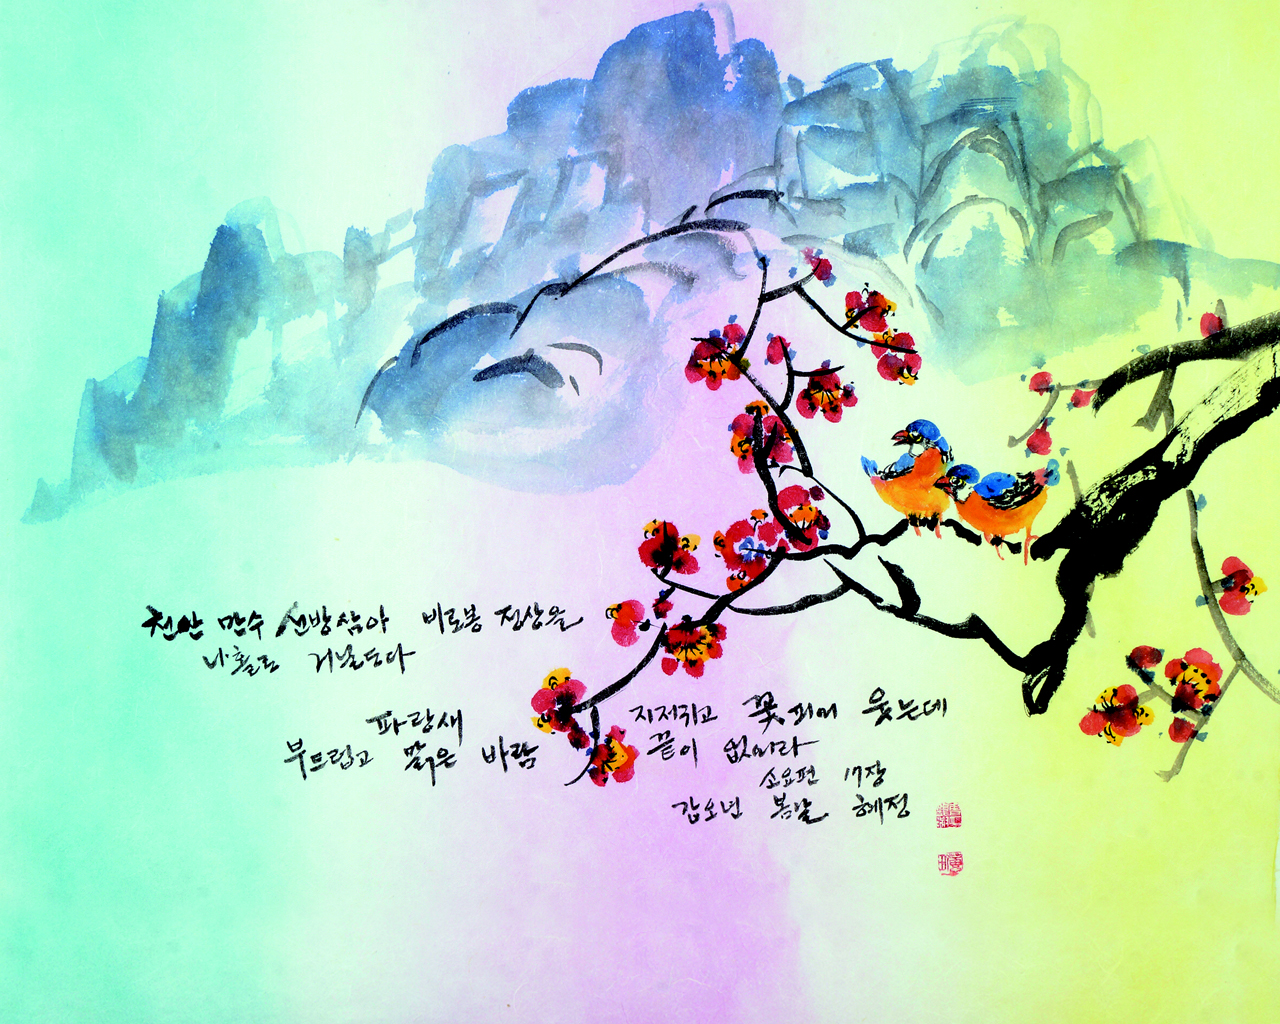 천산 만수 선방삼아 비로봉 정상을
나홀로 거닐도다
파랑새 지저귀고 꽃피어 웃는데
부드럽고 맑은 바람 끝이 없어라
소요편 17장
갑오년 봄날 혜정